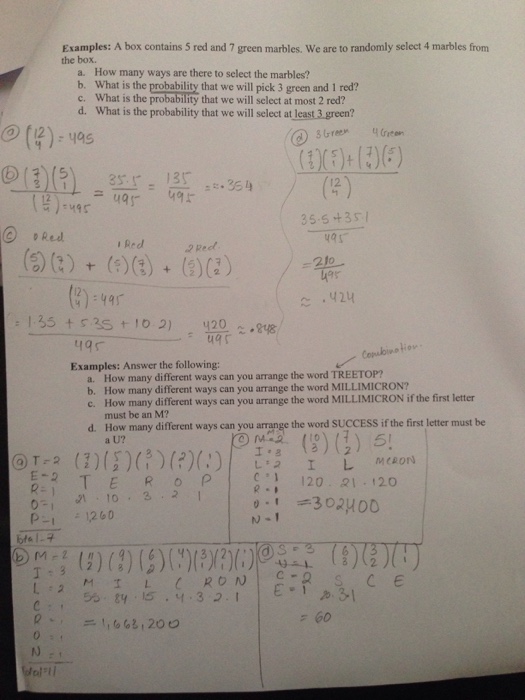 Examples: A box contains 5 red and 7 green marbles. We are to randomly select 4 marbles from
the box.
a. How many ways are there to select the marbles?
b. What is the probability that we will pick 3 green and 1 red?
c. What is the probability that we will select at most 2 red?
d. What is the probability that we will select at least 3 green?
(a) (12 4) = 495
(b) (7 3)(5 1) / (12 4) = 495 = 35·5 / 495 = 135 / 495 ≈ .354
(c) 0 Red 1 Red 2 Red
(5 0)(7 4) + (5 1)(7 3) + (5 2)(7 2)
(12 4) = 495
= 1·35 + 5·35 + 10·21 / 495 = 420 / 495 ≈ .848
(d) 3 Green 4 Green
(7 3)(5 1) + (7 4)(5 0)
(12 4)
35·5 + 35·1
495
= 210 / 495
≈ .424
Combination
Examples: Answer the following:
a. How many different ways can you arrange the word TREETOP?
b. How many different ways can you arrange the word MILLIMICRON?
c. How many different ways can you arrange the word MILLIMICRON if the first letter
must be an M?
d. How many different ways can you arrange the word SUCCESS if the first letter must be
a U?
(a) T=2 (7 2)(5 2)(3 1)(2 1)(1 1)
E=2 T E R O P
R=1 21·10·3·2 1
O=1 = 1260
P=1
Total=7
(c) M=2 (10 3)(7 2) 5!
I=3 I L MCRON
L=2 120·21·120
C=1 = 302400
R=1
O=1
N=1
(b) M=2 (11 2)(9 3)(6 2)(4 1)(3 1)(2 1)(1 1)
I=3 M I L C R O N
L=2 55·84·15·4·3·2·1
C=1 = 1,663,200
R=1
O=1
N=1
Total=11
(d) S=3 (6 3)(3 2)(1 1)
U=1 S C E
C=2 20·3·1
E=1 = 60